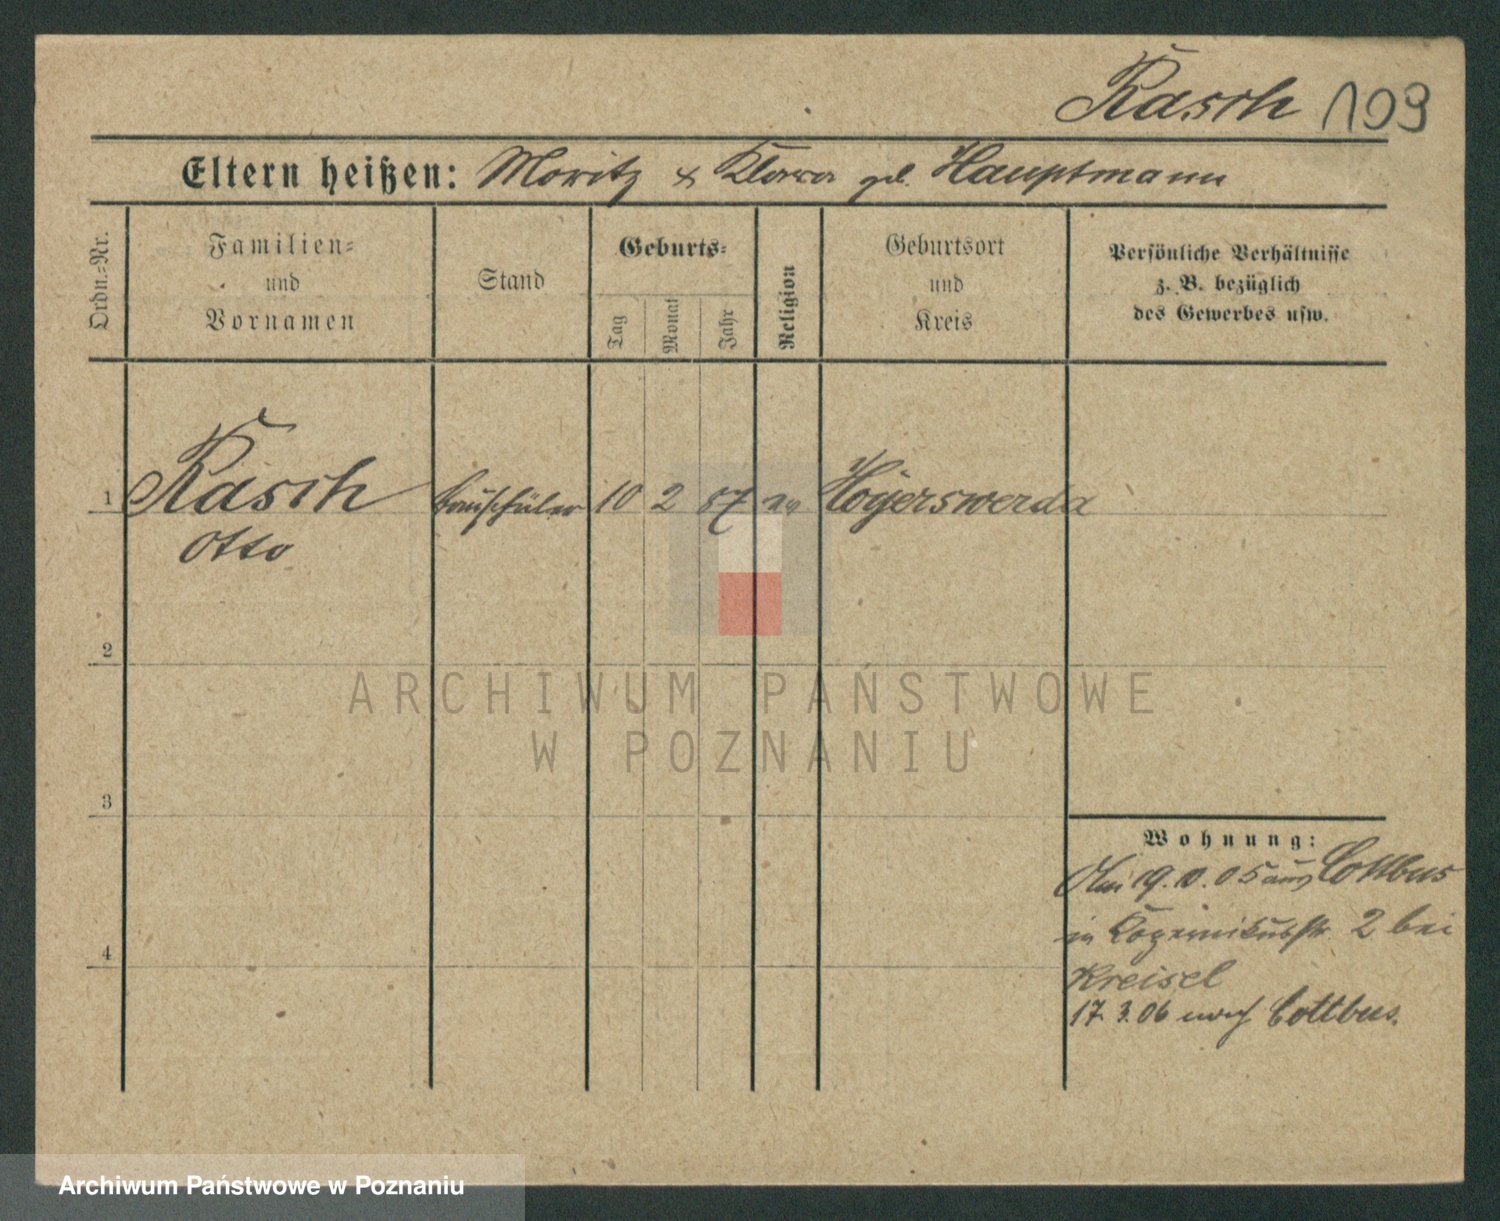 Rasch 199
Eltern heißen: Moritz & Klara geb. Hauptmann
Ordn.-Nr.
Familien-
und
Vornamen
Stand
Geburts-
Tag
Monat
Jahr
Religion
Geburtsort
und
Kreis
Persönliche Verhältnisse
z. B. bezüglich
des Gewerbes usw.
1 Rasch Bauschüler 10 2 87 ev Hoyerswerda
Otto
2
ARCHIWUM PAŃSTWOWE
W POZNANIU
3
Wohnung:
19.10.05 aus Cottbus
in Kopernikusstr. 2 bei
4
Kreisel
17.3.06 nach Cottbus.
Archiwum Państwowe w Poznaniu